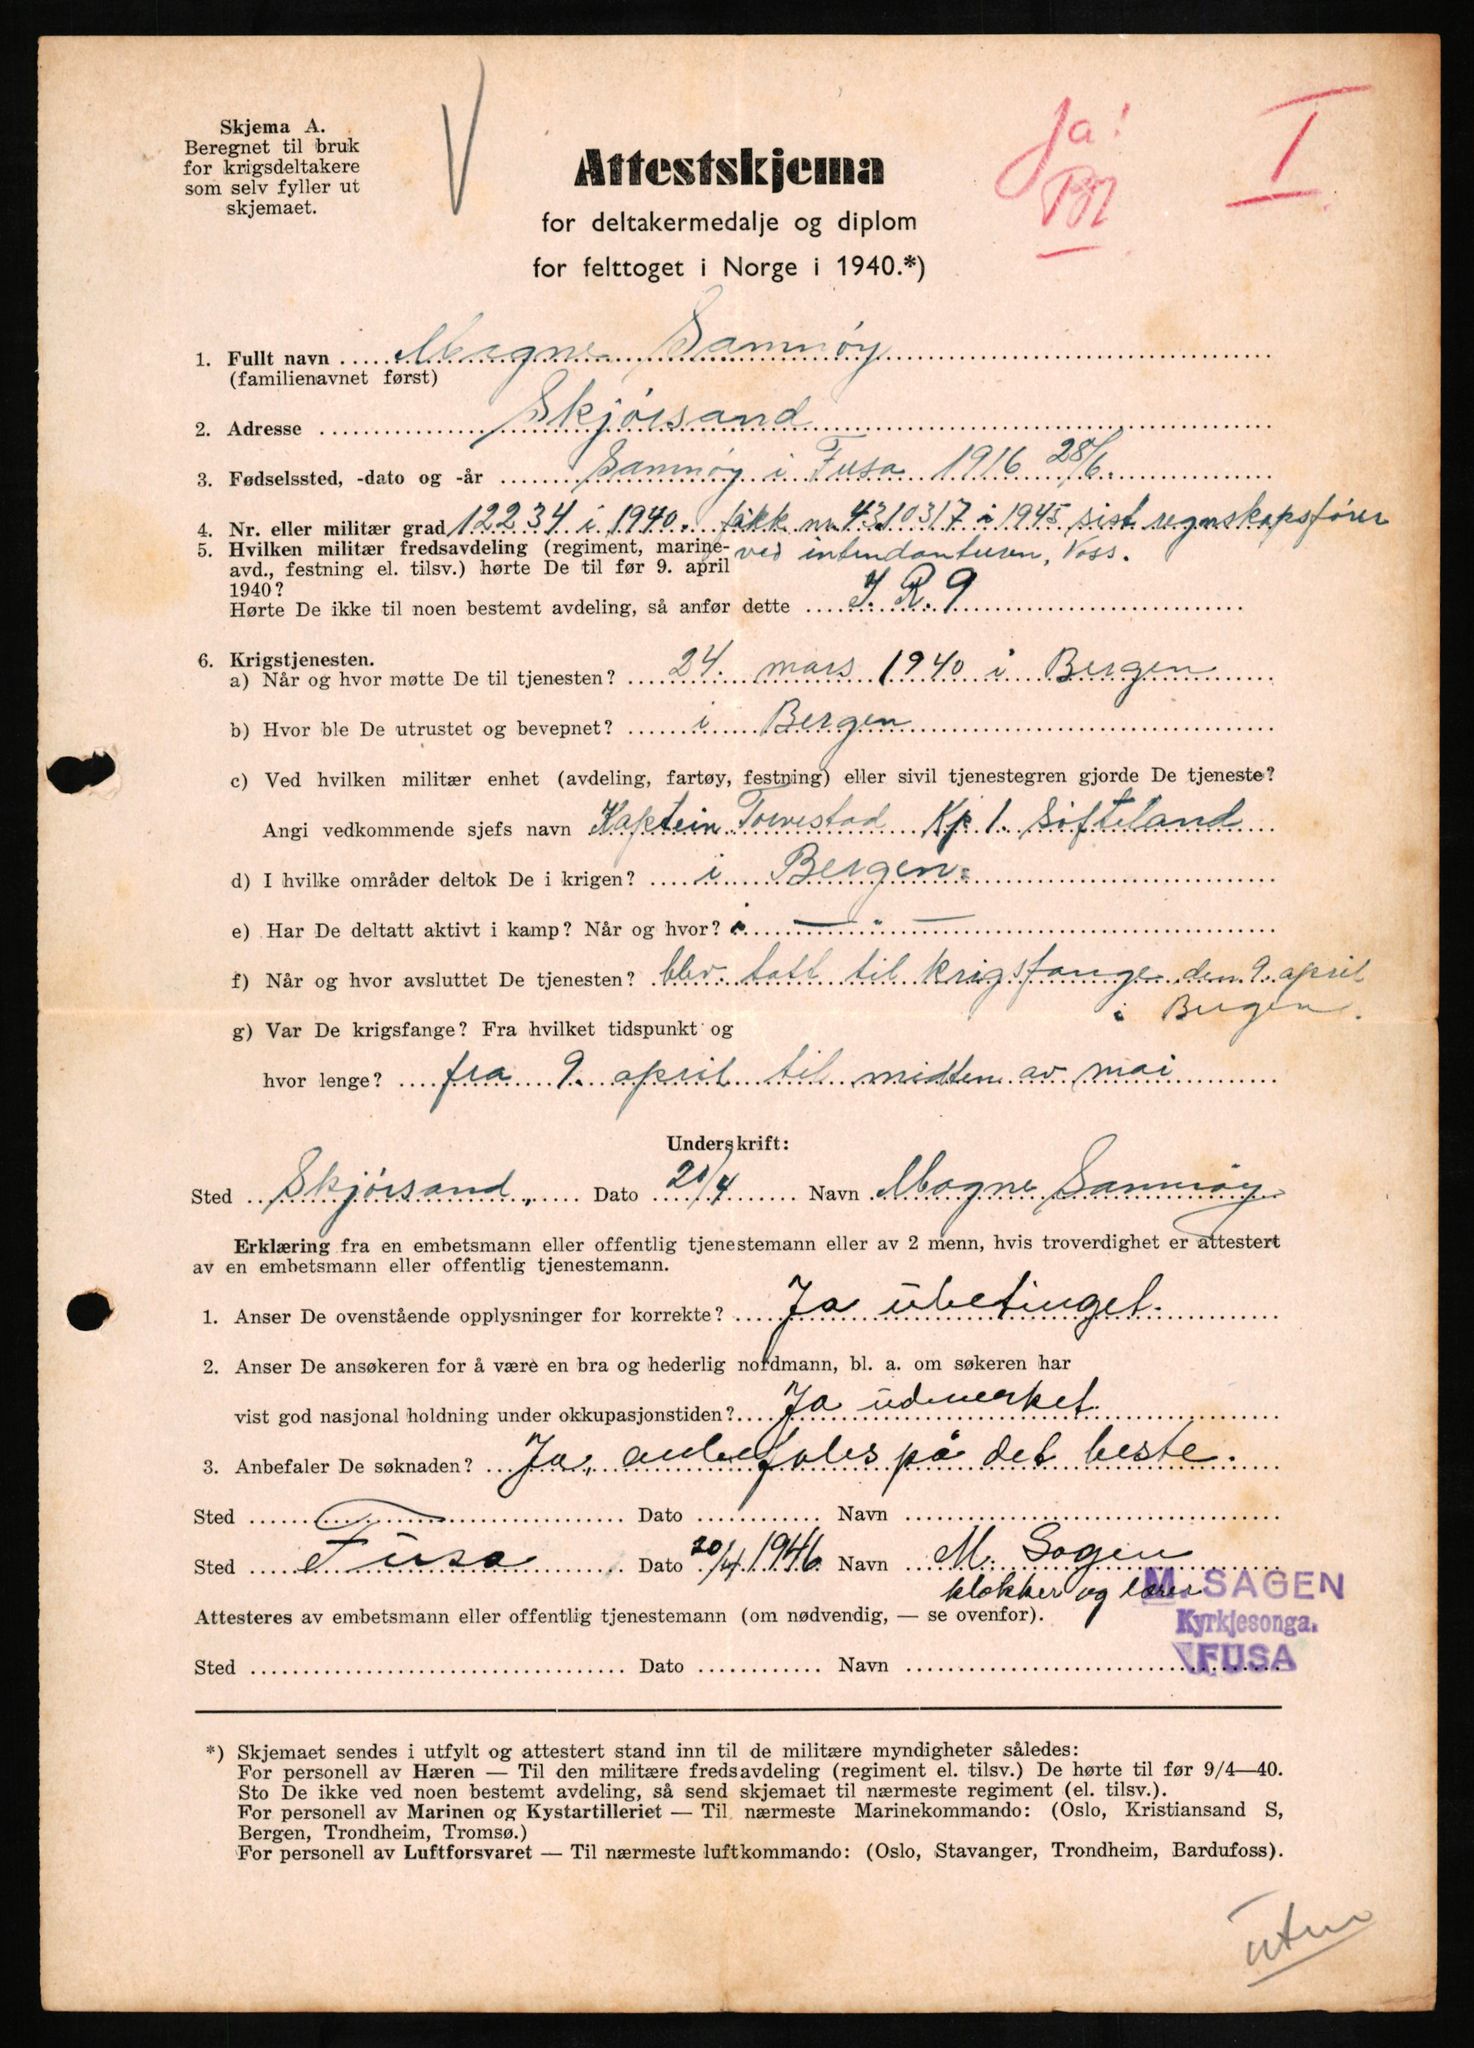 Skjema A.
Beregnet til bruk
for krigsdeltakere
som selv fyller ut
skjemaet.
V
Ja!
I
Attestskjema
for deltakermedalje og diplom
for felttoget i Norge i 1940.*)
1. Fullt navn Magne Samnøy
(familienavnet først)
2. Adresse Skjørsand
3. Fødselssted, -dato og -år Samnøy i Fusa 1916 28/6.
4. Nr. eller militær grad 12234 i 1940. fikk nr. 4310317 i 1945, sist regnskapsfører
5. Hvilken militær fredsavdeling (regiment, marine- ved intendanturen, Voss.
avd., festning el. tilsv.) hørte De til før 9. april
1940?
Hørte De ikke til noen bestemt avdeling, så anfør dette I. R. 9
6. Krigstjenesten.
a) Når og hvor møtte De til tjenesten? 24. mars 1940 i Bergen
b) Hvor ble De utrustet og bevepnet? i Bergen
c) Ved hvilken militær enhet (avdeling, fartøy, festning) eller sivil tjenestegren gjorde De tjeneste?
Angi vedkommende sjefs navn Kaptein Torvestad Kp 1. Søfteland
d) I hvilke områder deltok De i krigen? i Bergen.
e) Har De deltatt aktivt i kamp? Når og hvor? i — " —
f) Når og hvor avsluttet De tjenesten? blev tatt til krigsfange den 9. april
i Bergen.
g) Var De krigsfange? Fra hvilket tidspunkt og
hvor lenge? fra 9. april til midten av mai
Underskrift:
Sted Skjørsand, Dato 20/4 Navn Magne Samnøy
Erklæring fra en embetsmann eller offentlig tjenestemann eller av 2 menn, hvis troverdighet er attestert
av en embetsmann eller offentlig tjenestemann.
1. Anser De ovenstående opplysninger for korrekte? Ja ubetinget.
2. Anser De ansøkeren for å være en bra og hederlig nordmann, bl. a. om søkeren har
vist god nasjonal holdning under okkupasjonstiden? Ja udmerket.
3. Anbefaler De søknaden? Ja, anbefales på det beste.
Sted Dato Navn
Sted Fusa Dato 20/4 1946 Navn M. Sagen
klokker og lærer
M. SAGEN
Attesteres av embetsmann eller offentlig tjenestemann (om nødvendig, — se ovenfor).
Kyrkjesonga.
FUSA
Sted Dato Navn
*) Skjemaet sendes i utfylt og attestert stand inn til de militære myndigheter således:
For personell av Hæren — Til den militære fredsavdeling (regiment el. tilsv.) De hørte til før 9/4—40.
Sto De ikke ved noen bestemt avdeling, så send skjemaet til nærmeste regiment (el. tilsv.).
For personell av Marinen og Kystartilleriet — Til nærmeste Marinekommando: (Oslo, Kristiansand S,
Bergen, Trondheim, Tromsø.)
For personell av Luftforsvaret — Til nærmeste luftkommando: (Oslo, Stavanger, Trondheim, Bardufoss).